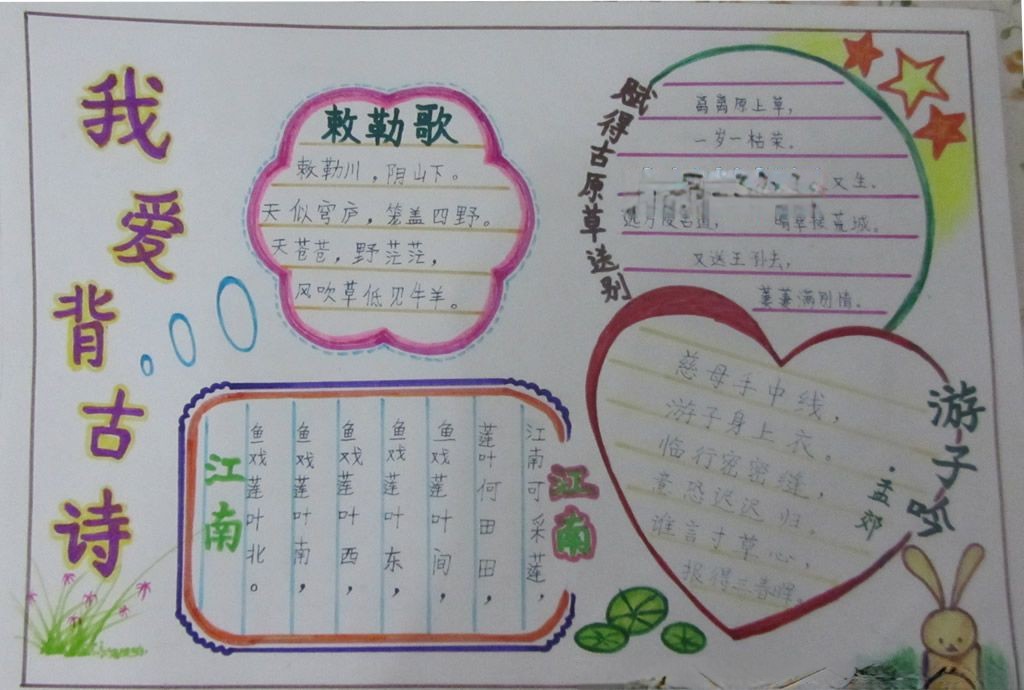 我爱背古诗
敕勒歌
敕勒川，阴山下。
天似穹庐，笼盖四野。
天苍苍，野茫茫，
风吹草低见牛羊。
赋得古原草送别
离离原上草，
一岁一枯荣。
又生。
晴翠接荒城。
又送王孙去，
萋萋满别情。
江南
江南可采莲，
莲叶何田田，
鱼戏莲叶间，
鱼戏莲叶东，
鱼戏莲叶西，
鱼戏莲叶南，
鱼戏莲叶北。
江南
游子吟
·孟郊
慈母手中线，
游子身上衣。
临行密密缝，
意恐迟迟归，
谁言寸草心，
报得三春晖。